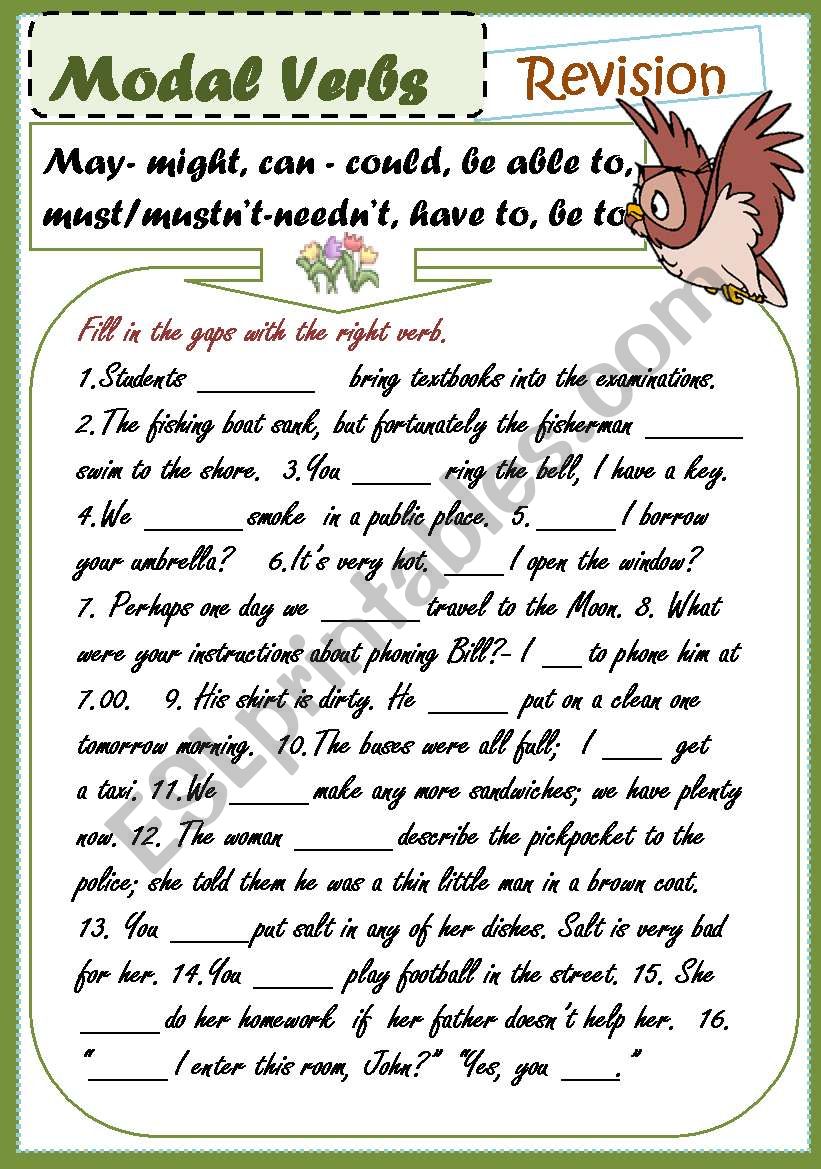 Modal Verbs
Revision
May- might, can - could, be able to,
must/mustn't-needn't, have to, be to
Fill in the gaps with the right verb.
1.Students ________ bring textbooks into the examinations.
2.The fishing boat sank, but fortunately the fisherman ______
swim to the shore. 3.You _____ ring the bell, I have a key.
4.We ______ smoke in a public place. 5._____ I borrow
your umbrella? 6.It's very hot. ____ I open the window?
7. Perhaps one day we ______ travel to the Moon. 8. What
were your instructions about phoning Bill?- I ___ to phone him at
7.00. 9. His shirt is dirty. He _____ put on a clean one
tomorrow morning. 10.The buses were all full; I ____ get
a taxi. 11.We _____ make any more sandwiches; we have plenty
now. 12. The woman ______ describe the pickpocket to the
police; she told them he was a thin little man in a brown coat.
13. You _____ put salt in any of her dishes. Salt is very bad
for her. 14.You _____ play football in the street. 15. She
_____ do her homework if her father doesn't help her. 16.
"_____ I enter this room, John?" "Yes, you ____."
ESLprintables.com